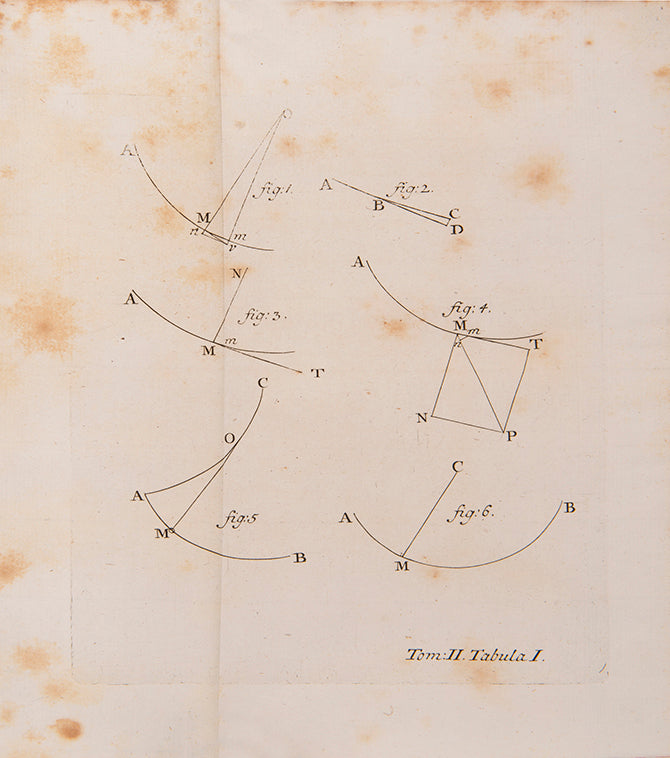 O
A
fig:1.
M
n
m
r
A
fig:2.
B
C
D
N
A
fig:3.
M
m
T
A
fig:4.
M
m
n
T
N
P
C
O
A
fig:5
M
B
C
A
fig:6.
B
M
Tom:II. Tabula I.